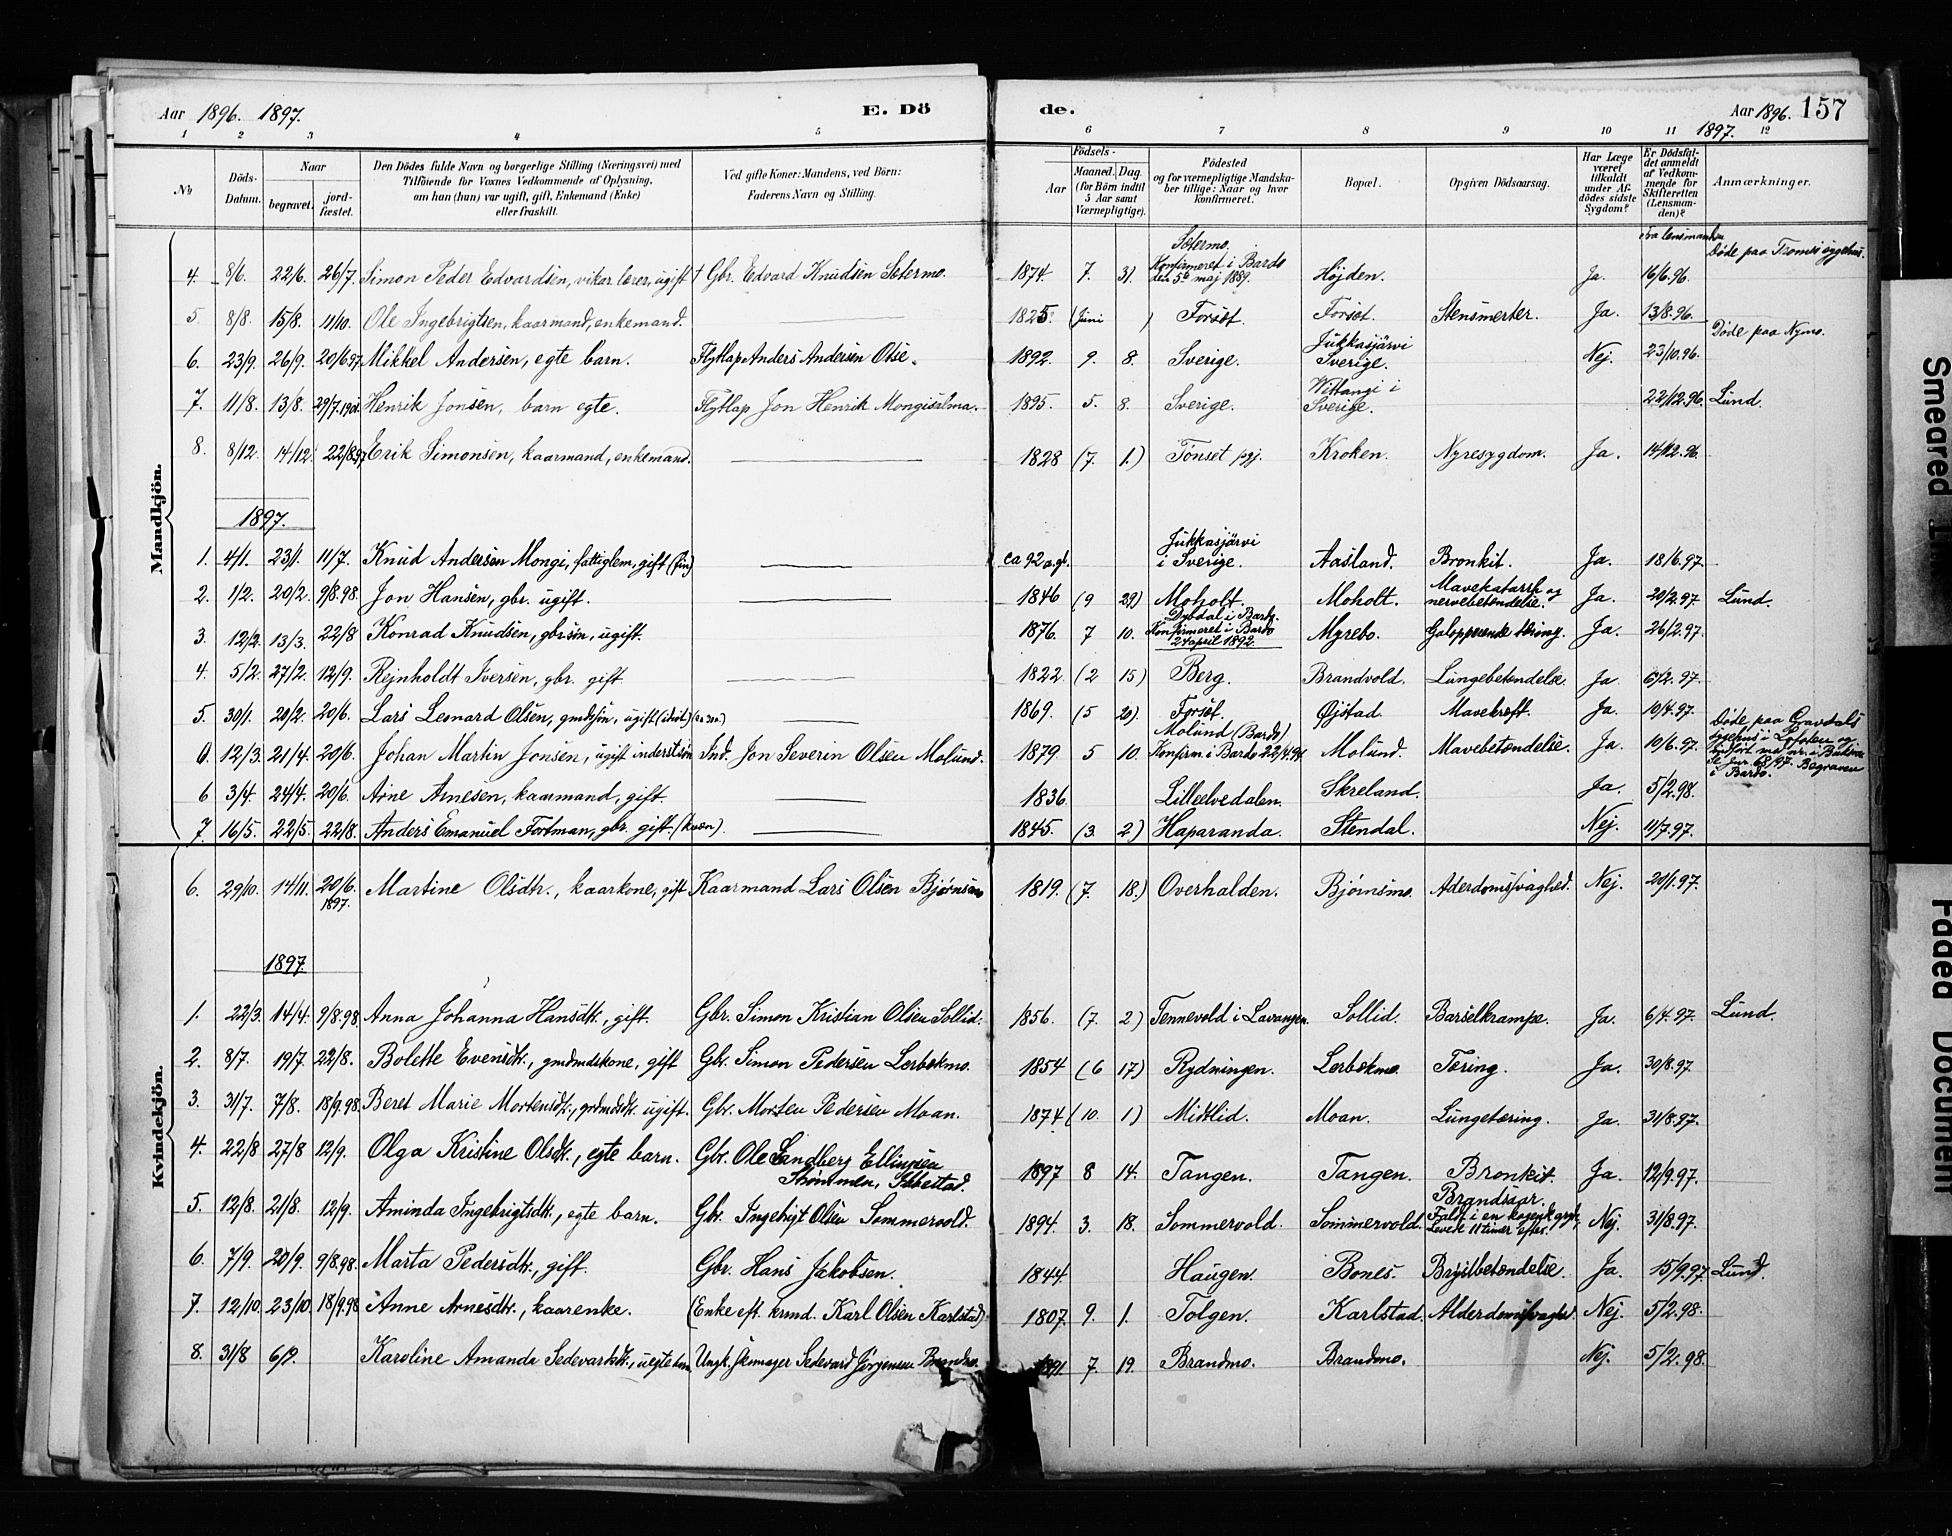 Aar 1896. 1897. E. Dö de. Aar 1896. 1897. 157
1 2 3 4 5 6 7 8 9 10 11 12
No
Döds-Datum.
Naar
begravet.
jord-fæstet.
Den Dödes fulde Navn og borgerlige Stilling (Næringsvei) med
Tilföiende for Voxnes Vedkommende af Oplysning,
om han (hun) var ugift, gift, Enkemand (Enke)
eller fraskilt.
Ved gifte Koner: Mandens, ved Börn:
Faderens Navn og Stilling.
Födsels-
Aar
Maaned. Dag.
(for Börn indtil
5 Aar samt
Værnepligtige).
Födested
og for værnepligtige Mandska-
ber tillige: Naar og hvor
konfirmeret.
Bopæl.
Opgiven Dödsaarsag.
Har Læge
været
tilkaldt
under Af-
dödes sidste
Sygdom?
Er Dödsfal-
det anmeldt
af Vedkom-
mende for
Skifteretten
(Lensman-
den)?
Anmærkninger.
Mandkjön.
4. 8/6. 22/6. 26/7. Simon Peder Edvardsen, vikar.lærer, ugift † Gbr. Edvard Knudsen Sætermo. 1874 7. 31. Sætermo. Konfirmeret i Bardo den 5te maj 1889. Højden. Ja. 16/6.96. Døde paa Tromsø sygehus.
5. 8/8. 15/8. 11/10. Ole Ingebrigtsen, kaarmand, enkemand. 1825 (juni ) Forsøt. Forsøt. Stensmerter. Ja. 13/8.96.
6. 23/9. 26/9. 20/6 97 Mikkel Andersen, egte barn. Flytlap Anders Andersen Otse. 1892. 9. 8. Sverige. Jukkasjärvi Sverige. Nej. 23/10.96. Døde paa Nymo.
7. 11/8. 13/8. 29/7.1901. Henrik Jonsen, barn egte. Flytlap Jon Henrik Mongisælma. 1895. 5. 8. Sverige. Wittangi i Sverige. 22/12.96. Lund.
8. 8/12. 14/12. 22/8 97 Erik Simonsen, kaarmand, enkemand. 1828 (7. 1.) Tønset pgj. Kroken. Nyresygdom. Ja. 14/12.96.
1897.
1. 4/1. 23/1. 11/7. Knud Andersen Mongi, fattiglem, gift (fin) ca 92 a. gl. Jukkasjärvi i Sverige. Aasland. Bronkit. Ja. 18/6.97.
2. 1/2. 20/2. 9/8.98. Jon Hansen, gbr. ugift. 1846 (9 29) Moholt. Moholt. Mavekatarrh og nervebetændelse. Ja. 20/2.97. Lund.
3. 12/2. 13/3. 22/8 Konrad Knudsen, gbrsøn, ugift. 1876. 7 10. Dybdal i Bardo. Konfirmeret i Bardo 24 april 1892. Myrebo. Galopperende tæring. Ja. 26/2.97.
4. 5/2. 27/2. 12/9. Rejnholdt Iversen, gbr. gift 1822 (2 15) Berg. Brandvold. Lungebetændelse. Ja. 6/2.97.
5. 30/1. 20/2. 20/6. Lars Leonard Olsen, gmdsøn, ugift (idiot) 1869. (5 20). Forsøt. Øjstad. Mavekræft. Ja. 10/4.97.
12/3. 21/4. 20/6. Johan Martin Jonsen, ugift inderstsøn Ind. Jon Severin Olsen Molund. 1879 5 10. Molund (Bardo) Konfirm. i Bardo 22/4.94 Molund. Mavebetændelse. Ja. 10/6.97. Døde paa Gravdals sygehus i Lofoten og Begraven i Bardo.
6 3/4. 24/4. 20/6. Arne Arnesen, kaarmand, gift. 1836 Lilleelvedalen. Skreland. Ja. 5/2.98.
7. 16/5. 22/5. 22/8. Anders Emanuel Fortman, gbr. gift. (kvæn). 1845. (3. 2) Haparanda. Stendal. Nej. 11/7.97.
Kvindekjön.
6. 29/10. 14/11. 20/6. 1897. Martine Olsdtr., kaarkone, gift Kaarmand Lars Olsen Bjørnsmo 1819. (7. 18.) Overhalden. Bjørnsmo. Aderdomssvaghed. Nej. 20/1.97.
1897
1. 22/3. 14/4. 9/8.98. Anna Johanna Hansdtr., gift. Gbr. Simon Kristian Olsen Sollid. 1856. (7. 2) Tennevold i Lavangen. Sollid. Barselkrampe. Ja. 6/4.97. Lund.
2. 8/7. 19/7. 22/8. Bolette Evensdtr., gmdmdskone, gift Gbr. Simon Pedersen Lerbækmo. 1854 (6 17) Rydningen. Lerbækmo. Tæring. Ja. 30/8.97
3. 31/7. 7/8. 18/9.98. Beret Marie Mortensdtr., grdmdsdtr. ugift. Gbr. Morten Pedersen Moan. 1874 (10. 1) Midtlid. Moan. Lungetæring. Ja. 31/8.97.
4. 22/8 27/8 12/9. Olga Kristine Olsdtr., egte barn. Gbr. Ole Sandberg Ellingsen Strømmen, Ibbestad. 1897 8 14. Tangen. Tangen. Bronkit. Ja. 12/9.97.
5. 12/8. 21/8. 12/9. Aminda Ingebrigtsdtr., egte barn. Gbr. Ingebrigt Olsen Sommervold. 1894. 3. 18. Sommervold. Sommervold. Brandsaar. Faldt i en kogende gryde, Levede 11 timer efter. Nej. 31/8.97.
6. 7/9. 20/9. 9/8.98. Marta Pedersdtr., gift. Gbr. Hans Jakobsen. 1844. Haugen. Bones. Brystbetændelse. Ja. 15/9.97. Lund.
7. 12/10. 23/10. 18/9.98 Anne Arnesdtr., kaarenke. (Enke eft. krmd. Karl Olsen Karlstad) 1807. 9. 1. Tolgen. Karlstad. Alderdomssvaghed. Nej. 5/2.98.
8. 31/8 6/9. Karoline Amanda Sedevardsdtr., uegte barn Ungk. skomager Sedevard Jørgensen Brandmo. 1891. 7. 19. Brandmo. Brandmo. Nej. 5/2.98.
Smeared Ink
Faded Document